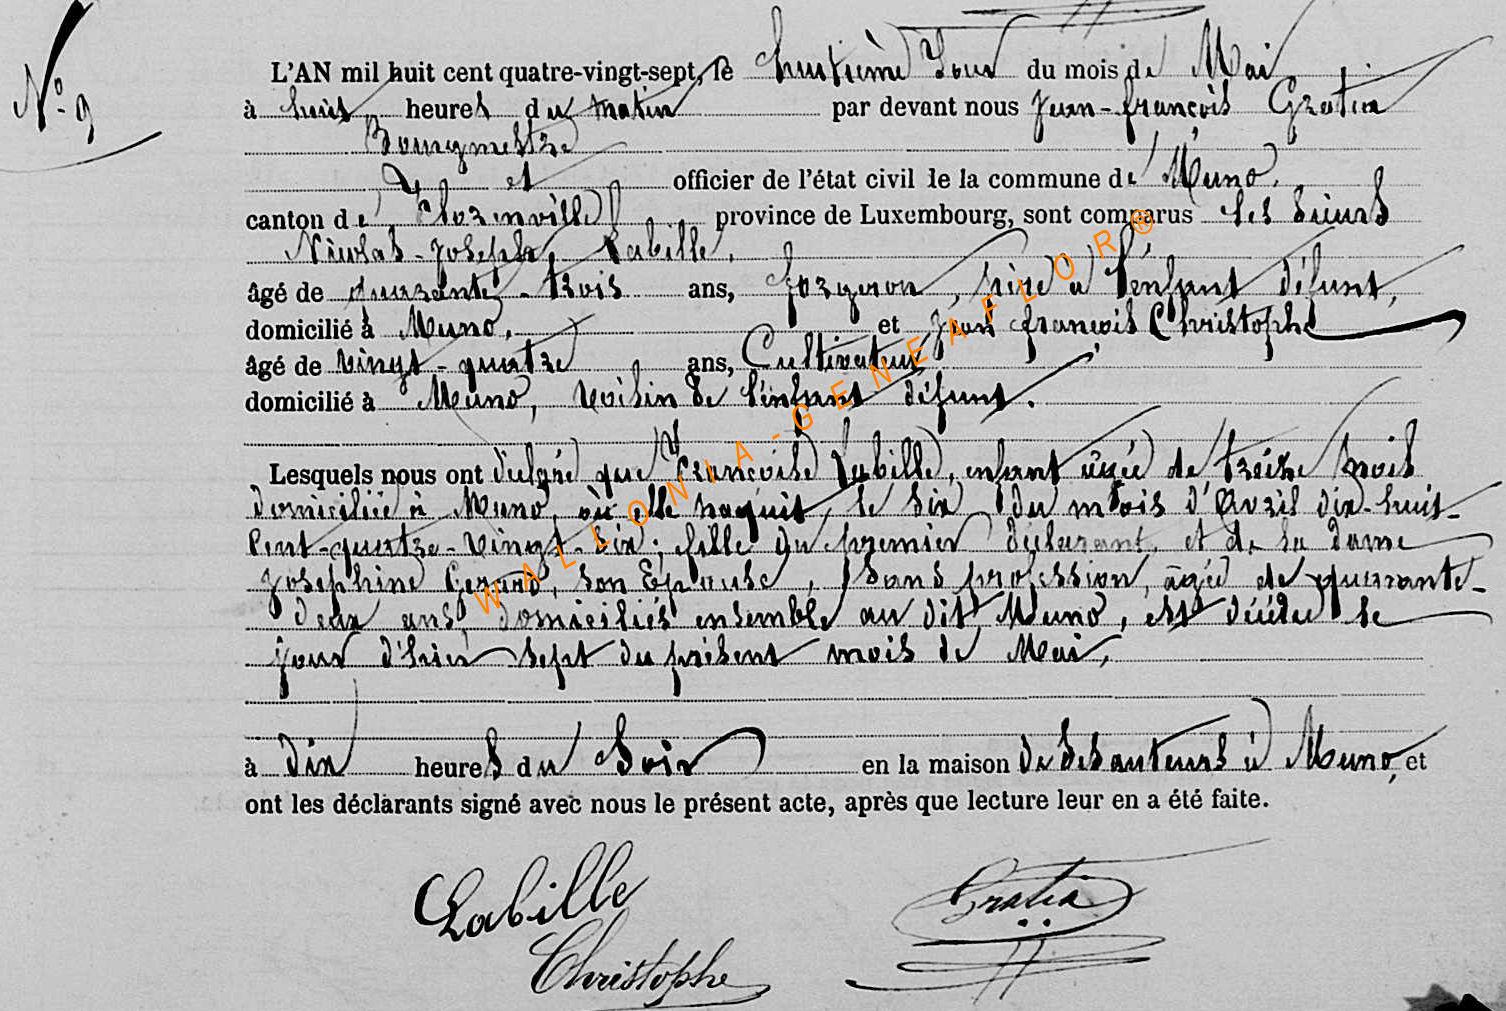 N° 9
L'AN mil huit cent quatre-vingt-sept, le huitième Jour du mois de Mai
à huit heures du matin par devant nous Jean-françois Gratia
Bourgmestre
et officier de l'état civil de la commune de Muno,
canton de Florenville province de Luxembourg, sont comparus les Sieurs
Nicolas-Joseph Labille,
âgé de quarante-trois ans, forgeron, père à l'enfant défunt,
domicilié à Muno, et Jean françois Christophe
âgé de vingt-quatre ans, Cultivateur
domicilié à Muno, voisin de l'enfant défunt.
Lesquels nous ont déclaré que Françoise Labille, enfant âgée de treize mois
domiciliée à Muno, où elle naquit, le six du mois d'Avril dix-huit-
Cent-quatre-Vingt-Six; fille du premier déclarant, et de la dame
Joséphine son Epouse, Sans profession, âgée de quarante-
deux ans, domiciliés ensemble au dit Muno, est décédée le
jour d'hier sept du présent mois de Mai,
à dix heures du Soir en la maison de ses auteurs à Muno, et
ont les déclarants signé avec nous le présent acte, après que lecture leur en a été faite.
Labille
Gratia
Christophe
WALLONIA-GENEAFLOR®